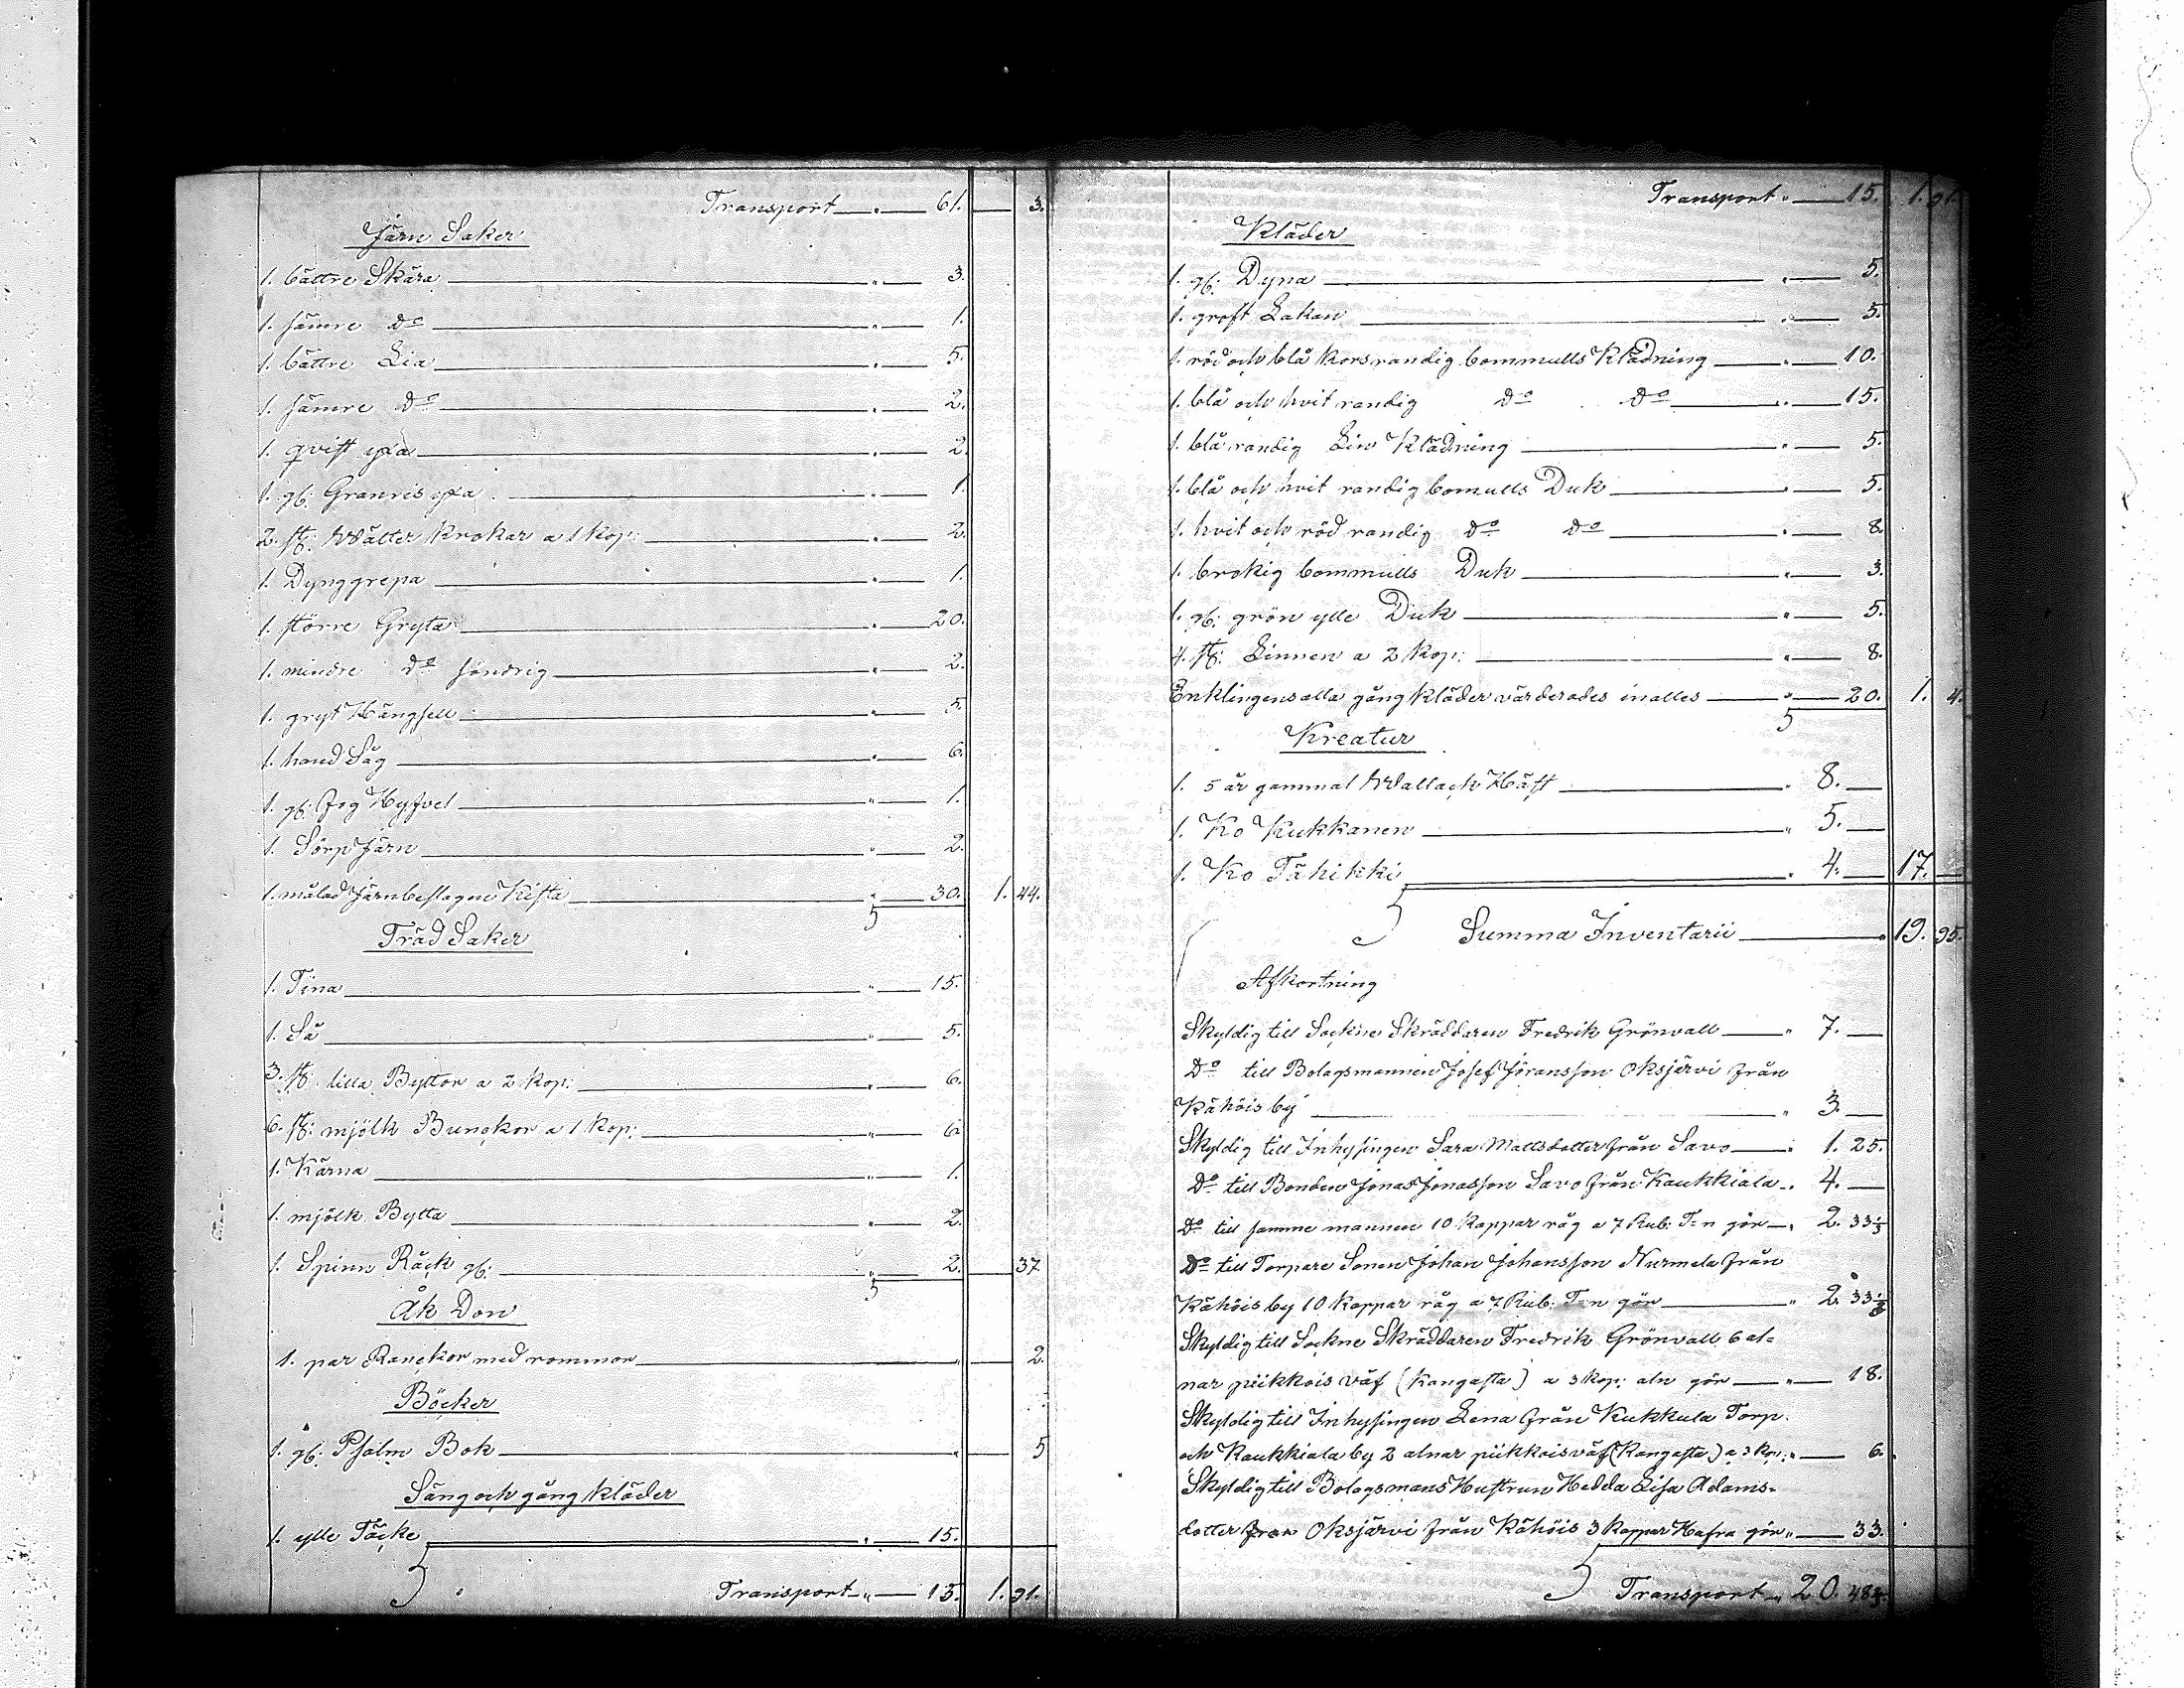 Transport " 61. 3.
Järn Saker
1. bättre Skära " 3.
1. sämre do " 1.
1. bättre Lia " 5.
1. sämre do " 2.
1. qvist yxa " 2.
1. gl: Granris yxa " 1.
2. st: Wälter Krokar a 1 Kop: " 2.
1. Dynggrepa " 1.
1. större Gryta " 20.
1. mindre do söndrig " 2.
1. gryt Hängsell " 5.
1. hand Såg " 6.
1. gl: Fog Hyfvel " 1.
1. Sörp Järn " 2.
1. målad Järnbeslagen Kista " 30. 1. 44.
Träd Saker
1. Tina " 15.
1. Så " 5.
3. st: lilla Byttor a 2 Kop: " 6.
6. st: mjölk Bunckor a 1 Kop: " 6.
1. Kärna " 1.
1. mjölk Bytta " 2.
1. Spinn Råck gl: " 2. 37
Åk Don
1. par Ranckor med rommor " 2.
Böcker
1. gl: Psalm Bok " 5
Säng och gång Kläder
1. ylle Täcke " 15.
Transport " 15. 1. 91.
Transport " 15. 1. 91.
Kläder
1. gl: Dyna " 5.
1. groft Lakan " 5.
1. röd och blå Korsrandig bommulls Klädning " 10.
1. blå och hvit randig do do " 15.
1. blå randig Lin Klädning " 5.
1. blå och hvit randig bomulls Duk " 5.
1. hvit och röd randig do do " 8.
1. brokig bommulls Duk " 3.
1. gl: grön ylle Duk " 5.
4. st: Linnen a 2 Kop: " 8.
Enklingens alla gång Kläder värderades inalles " 20. 1. 4.
Kreatur
1. 5 år gammal Wallack Häst " 8.
1. Ko Kukkanen " 5.
1. Ko Tähikki " 4. 17.
Summa Inventarii " 19. 95.
Afkortning
Skyldig till Sockne Skräddaren Fredrik Grönvall " 7.
Do till Bolagsmannen Josef Göransson Oksjärvi från
Kähöis by " 3.
Skyldig till Inhysingen Sara Mattsdotter från Savo " 1. 25.
Do till Bonden Jonas Jonasson Savo från Kaukkiala " 4.
Do till samme mannen 10 Kappar råg a 7 Rub: T=n gör " 2. 33 1/3
Do till Torpare Sonen Johan Johansson Nurmela från
Kähöis by 10 Kappar råg a 7 Rub: T=n gör " 2. 33 1/3
Skyldig till Sockne Skräddaren Fredrik Grönvall 6 al=
nar piikkois väf (Kangasta) a 3 Kop: aln gör " 18.
Skyldig till Inhysingen Lena från Kukkula Torp
och Kaukkiala by 2 alnar piikkois väf (Kangasta) a 3 Kop: " 6.
Skyldig till Bolagsmans Hustrun Hedda Lisa Adams=
dotter från Oksjärvi från Kähöis 3 Kappar Hafra gör " 33.
Transport " 20. 48